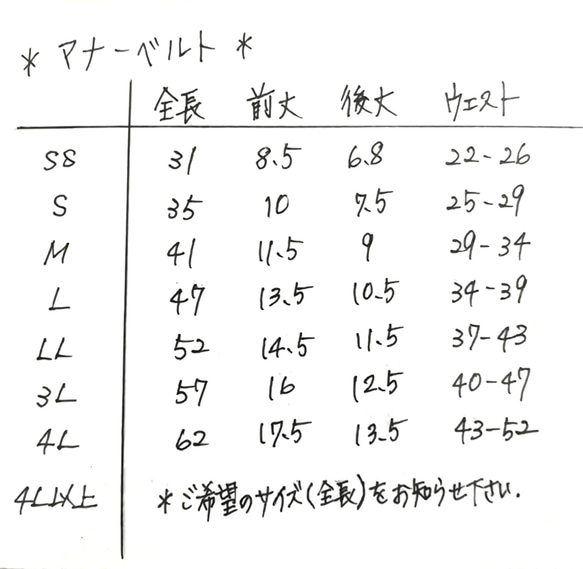 * マナーベルト *
全長 前丈 後丈 ウエスト
SS 31 8.5 6.8 22-26
S 35 10 7.5 25-29
M 41 11.5 9 29-34
L 47 13.5 10.5 34-39
LL 52 14.5 11.5 37-43
3L 57 16 12.5 40-47
4L 62 17.5 13.5 43-52
4L以上 *ご希望のサイズ(全長)をお知らせ下さい.